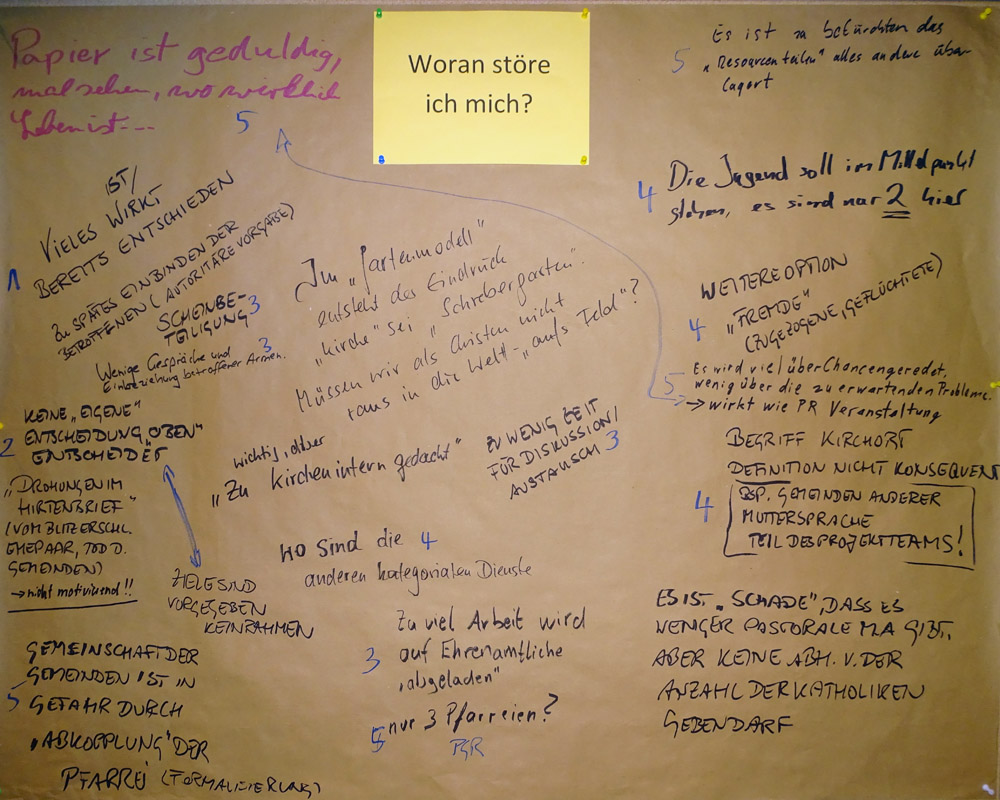 Woran störe
ich mich?
Papier ist geduldig,
mal sehen, wo wirklich
Leben ist---
5
5
Es ist zu befürchten das
"Resourcenteilen" alles andere über
lagert
4
Die Jugend soll im Mittelpunkt
stehen, es sind nur 2 hier
1
IST/
VIELES WIRKT
BEREITS ENTSCHIEDEN
ZU SPÄTES EINBINDEN DER
BETROFFENEN (AUTORITÄRE VORGABE)
SCHEINBE-
TEILIGUNG 3
Wenige Gespräche und 3
Einbeziehung betroffener Armen.
Im "Gartenmodell"
entsteht der Eindruck
"Kirche" sei "Schrebergarten".
Müssen wir als Christen nicht
raus in die Welt - "aufs Feld"?
WEITERE OPTION
4 "FREMDE"
(ZUGEZOGENE, GEFLÜCHTETE)
5
Es wird viel über Chancen geredet,
wenig über die zu erwartenden Probleme.
→ wirkt wie PR Veranstaltung
KEINE "EIGENE"
2 ENTSCHEIDUNG "OBEN"
ENTSCHEIDET
wichtig, aber
"Zu kirchenintern gedacht"
ZU WENIG ZEIT
FÜR DISKUSSION/
AUSTAUSCH 3
BEGRIFF KIRCHORT
DEFINITION NICHT KONSEQUENT
4 BSP. GEMEINDEN ANDERER
MUTTERSPRACHE
TEIL DES PROJEKTTEAMS!
"DROHUNGEN IM
HIRTENBRIEF"
(VOM BLITZ ERSCHL.
EHEPAAR, TOD D.
GEMEINDEN)
→ nicht motivierend!!
ZIELE SIND
VORGEGEBEN
KEIN RAHMEN
WO sind die 4
anderen kategorialen Dienste
Zu viel Arbeit wird
3 auf Ehrenamtliche
"abgeladen"
5 nur 3 Pfarreien?
PGR
ES IST "SCHADE", DASS ES
WENGER PASTORALE MA GIBT,
ABER KEINE ABH. V. DER
ANZAHL DER KATHOLIKEN
GEBENDARF
GEMEINSCHAFT DER
GEMEINDEN IST IN
5 GEFAHR DURCH
"ABKOPPLUNG" DER
PFARREI (FORMALISIERUNG)